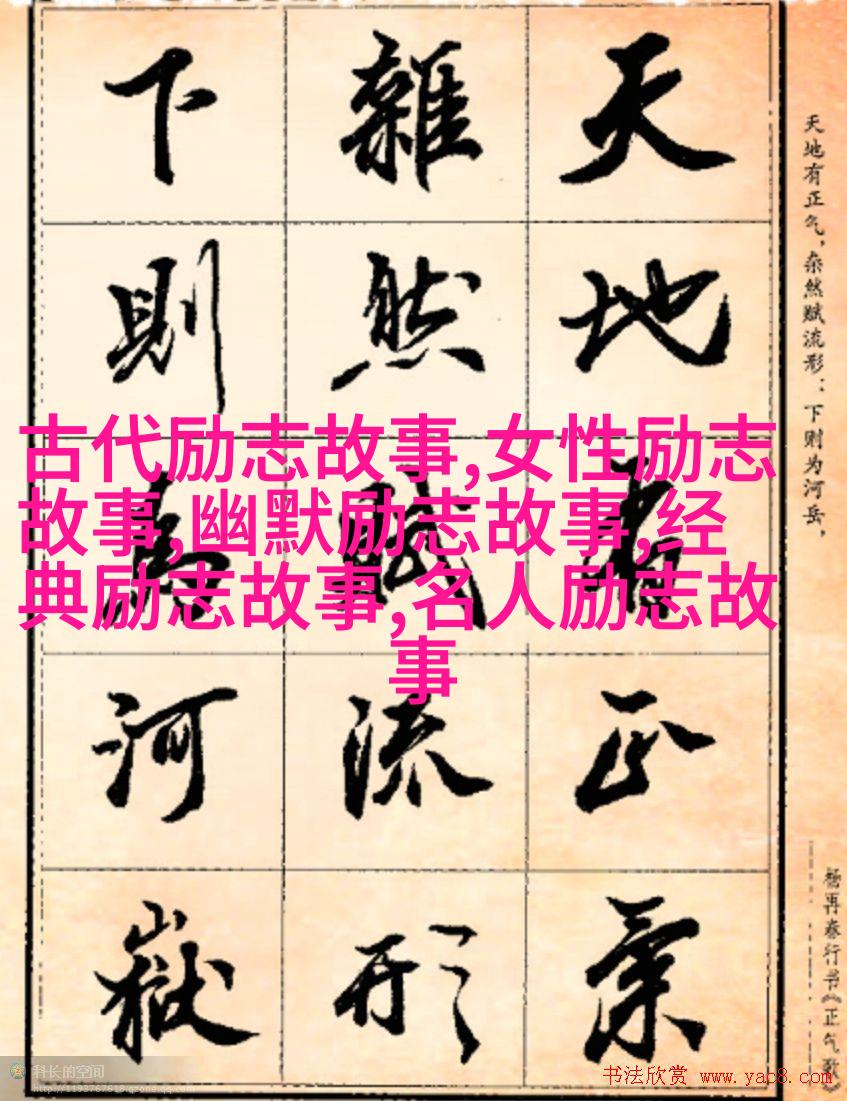 天地有正氣
雜然賦流形
下則為河嶽
天地有正气，杂然赋流形：下则为河岳，
杨再春行书《正气歌》
古代励志故事,女性励志
故事,幽默励志故事,经
典励志故事,名人励志故
事
科长的空间
http://1193767618.qzone.qq.com
书法欣赏 www.yac8.com